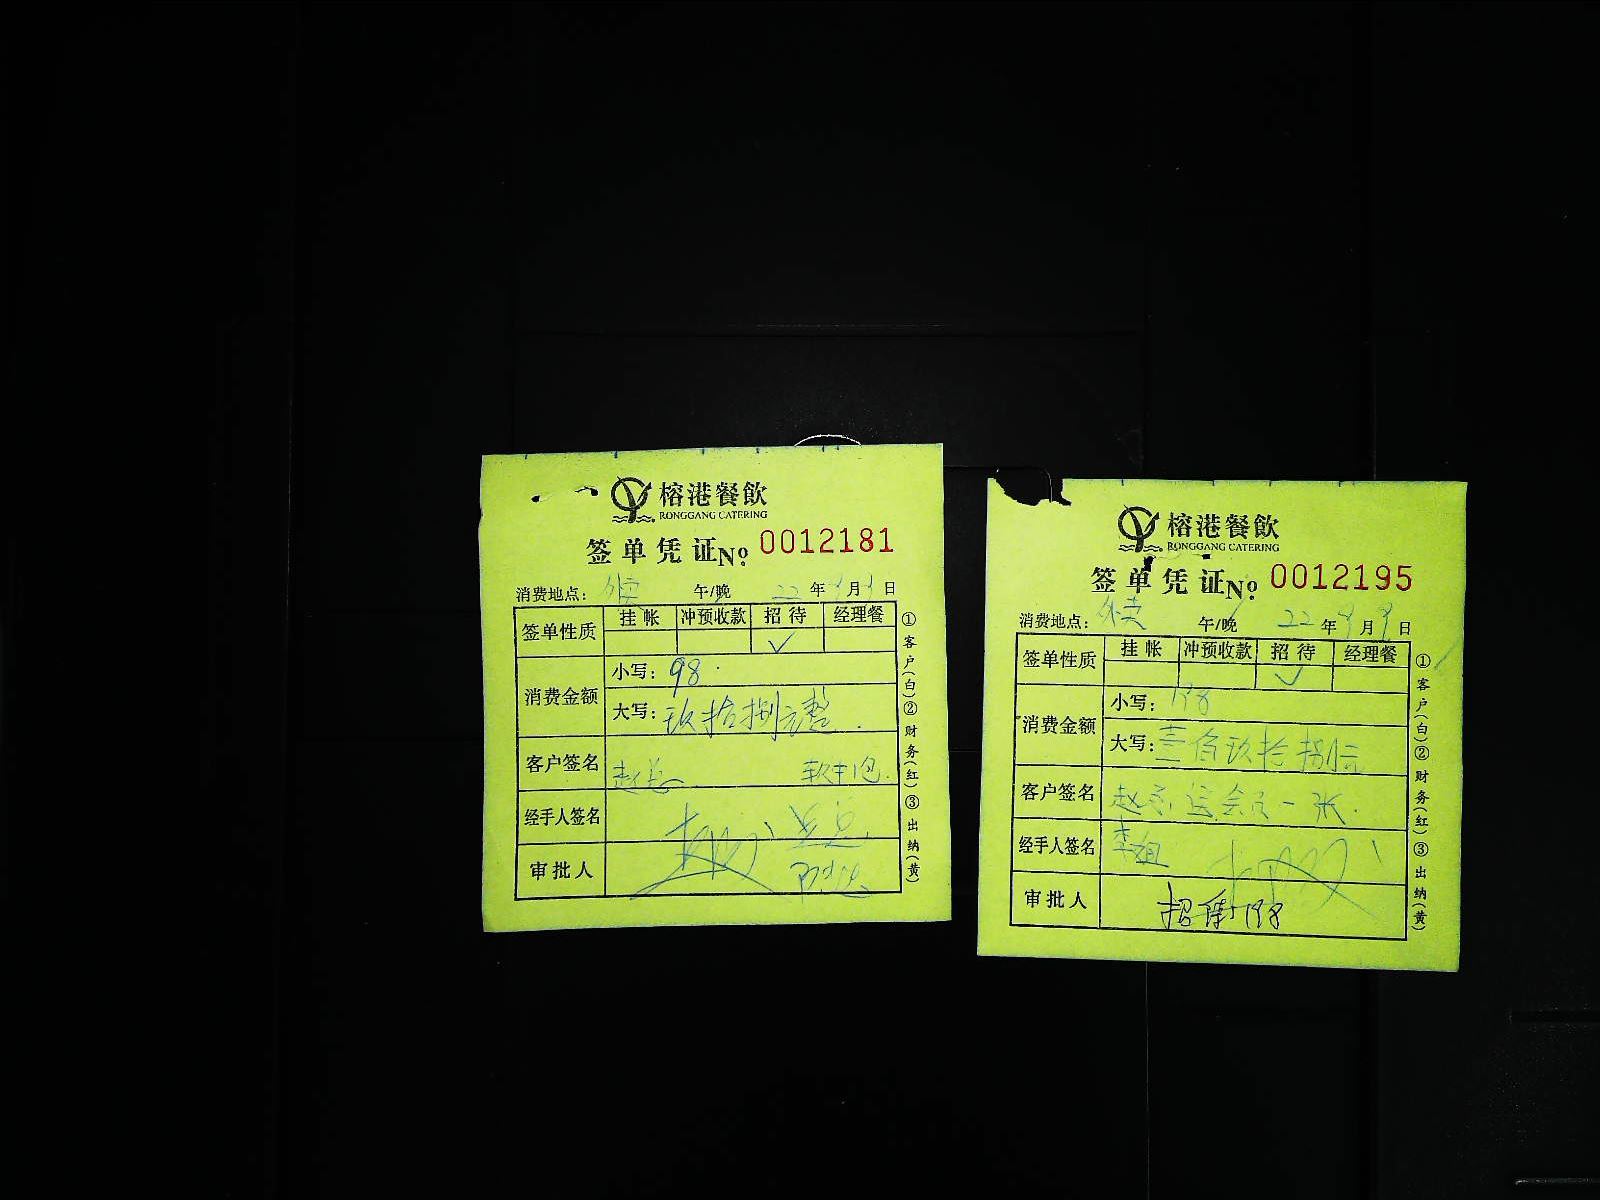 榕港餐飲
RONGGANG CATERING
签单凭证 No. 0012181
消费地点：外卖 午/晚 22年 月 日
签单性质 挂帐 冲预收款 招待 经理餐
✓
消费金额 小写：98.
大写：玖拾捌元整.
客户签名 赵总
经手人签名
审批人
①客户(白)②财务(红)③出纳(黄)
榕港餐飲
RONGGANG CATERING
签单凭证 No. 0012195
消费地点：外卖 午/晚 22年9月9日
签单性质 挂帐 冲预收款 招待 经理餐
✓
消费金额 小写：198
大写：壹佰玖拾捌元
客户签名 赵总送会员一张.
经手人签名 李姐
审批人 招待198
①客户(白)②财务(红)③出纳(黄)